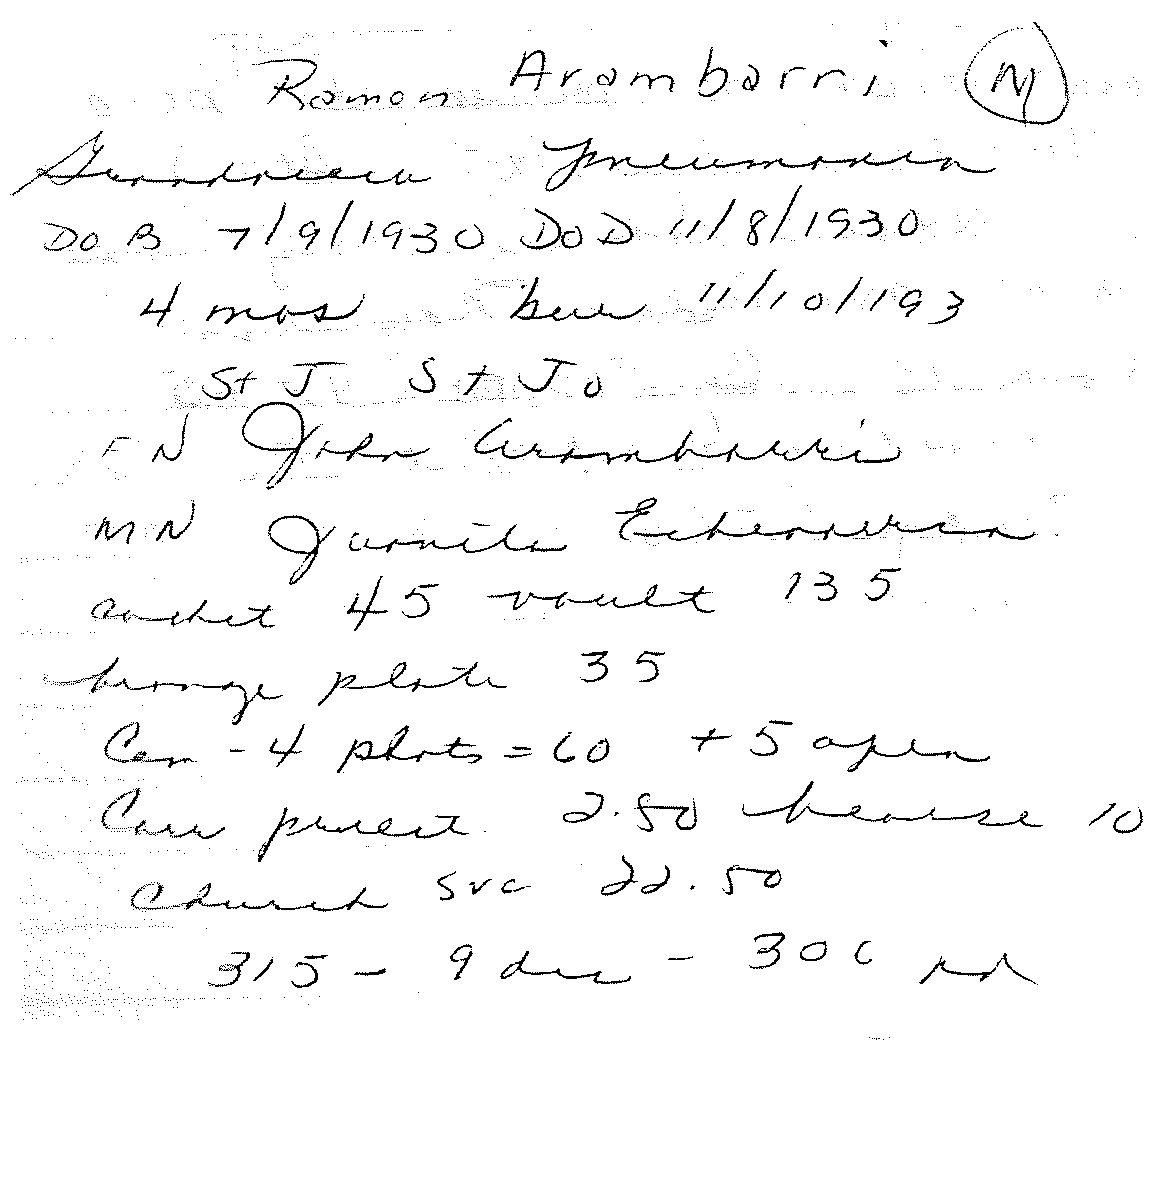 Ramon Arambarri M
pneumonia
DoB 7/9/1930 DoD 11/8/1930
4 mos bur 11/10/193
St J St Jo
FN John Arambarri
MN Juanita Echevarria
casket 45 vault 135
bronze plate 35
Cem - 4 plots = 60 + 5 open
Carr priest 2.50 hearse 10
Church svc 22.50
315 - 9 disc - 306 pd